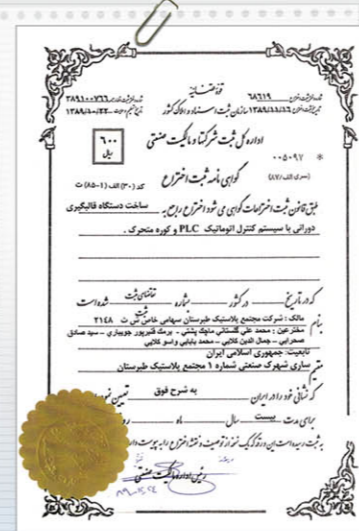 قوه قضائیه
شماره ثبت اختراع: ۶۸۶۱۹
شماره ثبت اظهارنامه: ۳۸۹۱۰۰۷۶۶
تاریخ ثبت اختراع: ۱۳۸۹/۱۱/۱۶
سازمان ثبت اسناد و املاک کشور
تاریخ ثبت اظهارنامه: ۱۳۸۹/۱۰/۲۲
اداره کل ثبت شرکتها و مالکیت صنعتی
۶۰۰
ریال
* ۰۰۵۰۹۷
(سری الف/۸۷)
گواهی نامه ثبت اختراع
کد (۳۰) الف (۱-۸۵) ت
طبق قانون ثبت اختراعات گواهی می شود اختراع راجع به ساخت دستگاه قالبگیری
دورانی با سیستم کنترل اتوماتیک PLC و کوره متحرک .
که در تاریخ در کشور بشماره تقاضای ثبت شده است
بنام مالک : شرکت مجتمع پلاستیک طبرستان سهامی خاص ش ث ۲۱۴۸
مخترعین : محمد علی گلستانی ماچک پشتی - برمک قنبرپور جویباری - سید صادق
صحرایی - جمال الدین کلایی - محمد بابایی واسو کلایی
تابعیت: جمهوری اسلامی ایران
مقیم ساری شهرک صنعتی شماره ۱ مجتمع پلاستیک طبرستان
که نشانی خود را در ایران به شرح فوق تعیین
برای مدت بیست سال ماه
به ثبت رسیده است این ورقه که یک نسخه از توصیف و نقشه اختراع را به پیوست دارد
رئیس اداره مالکیت صنعتی